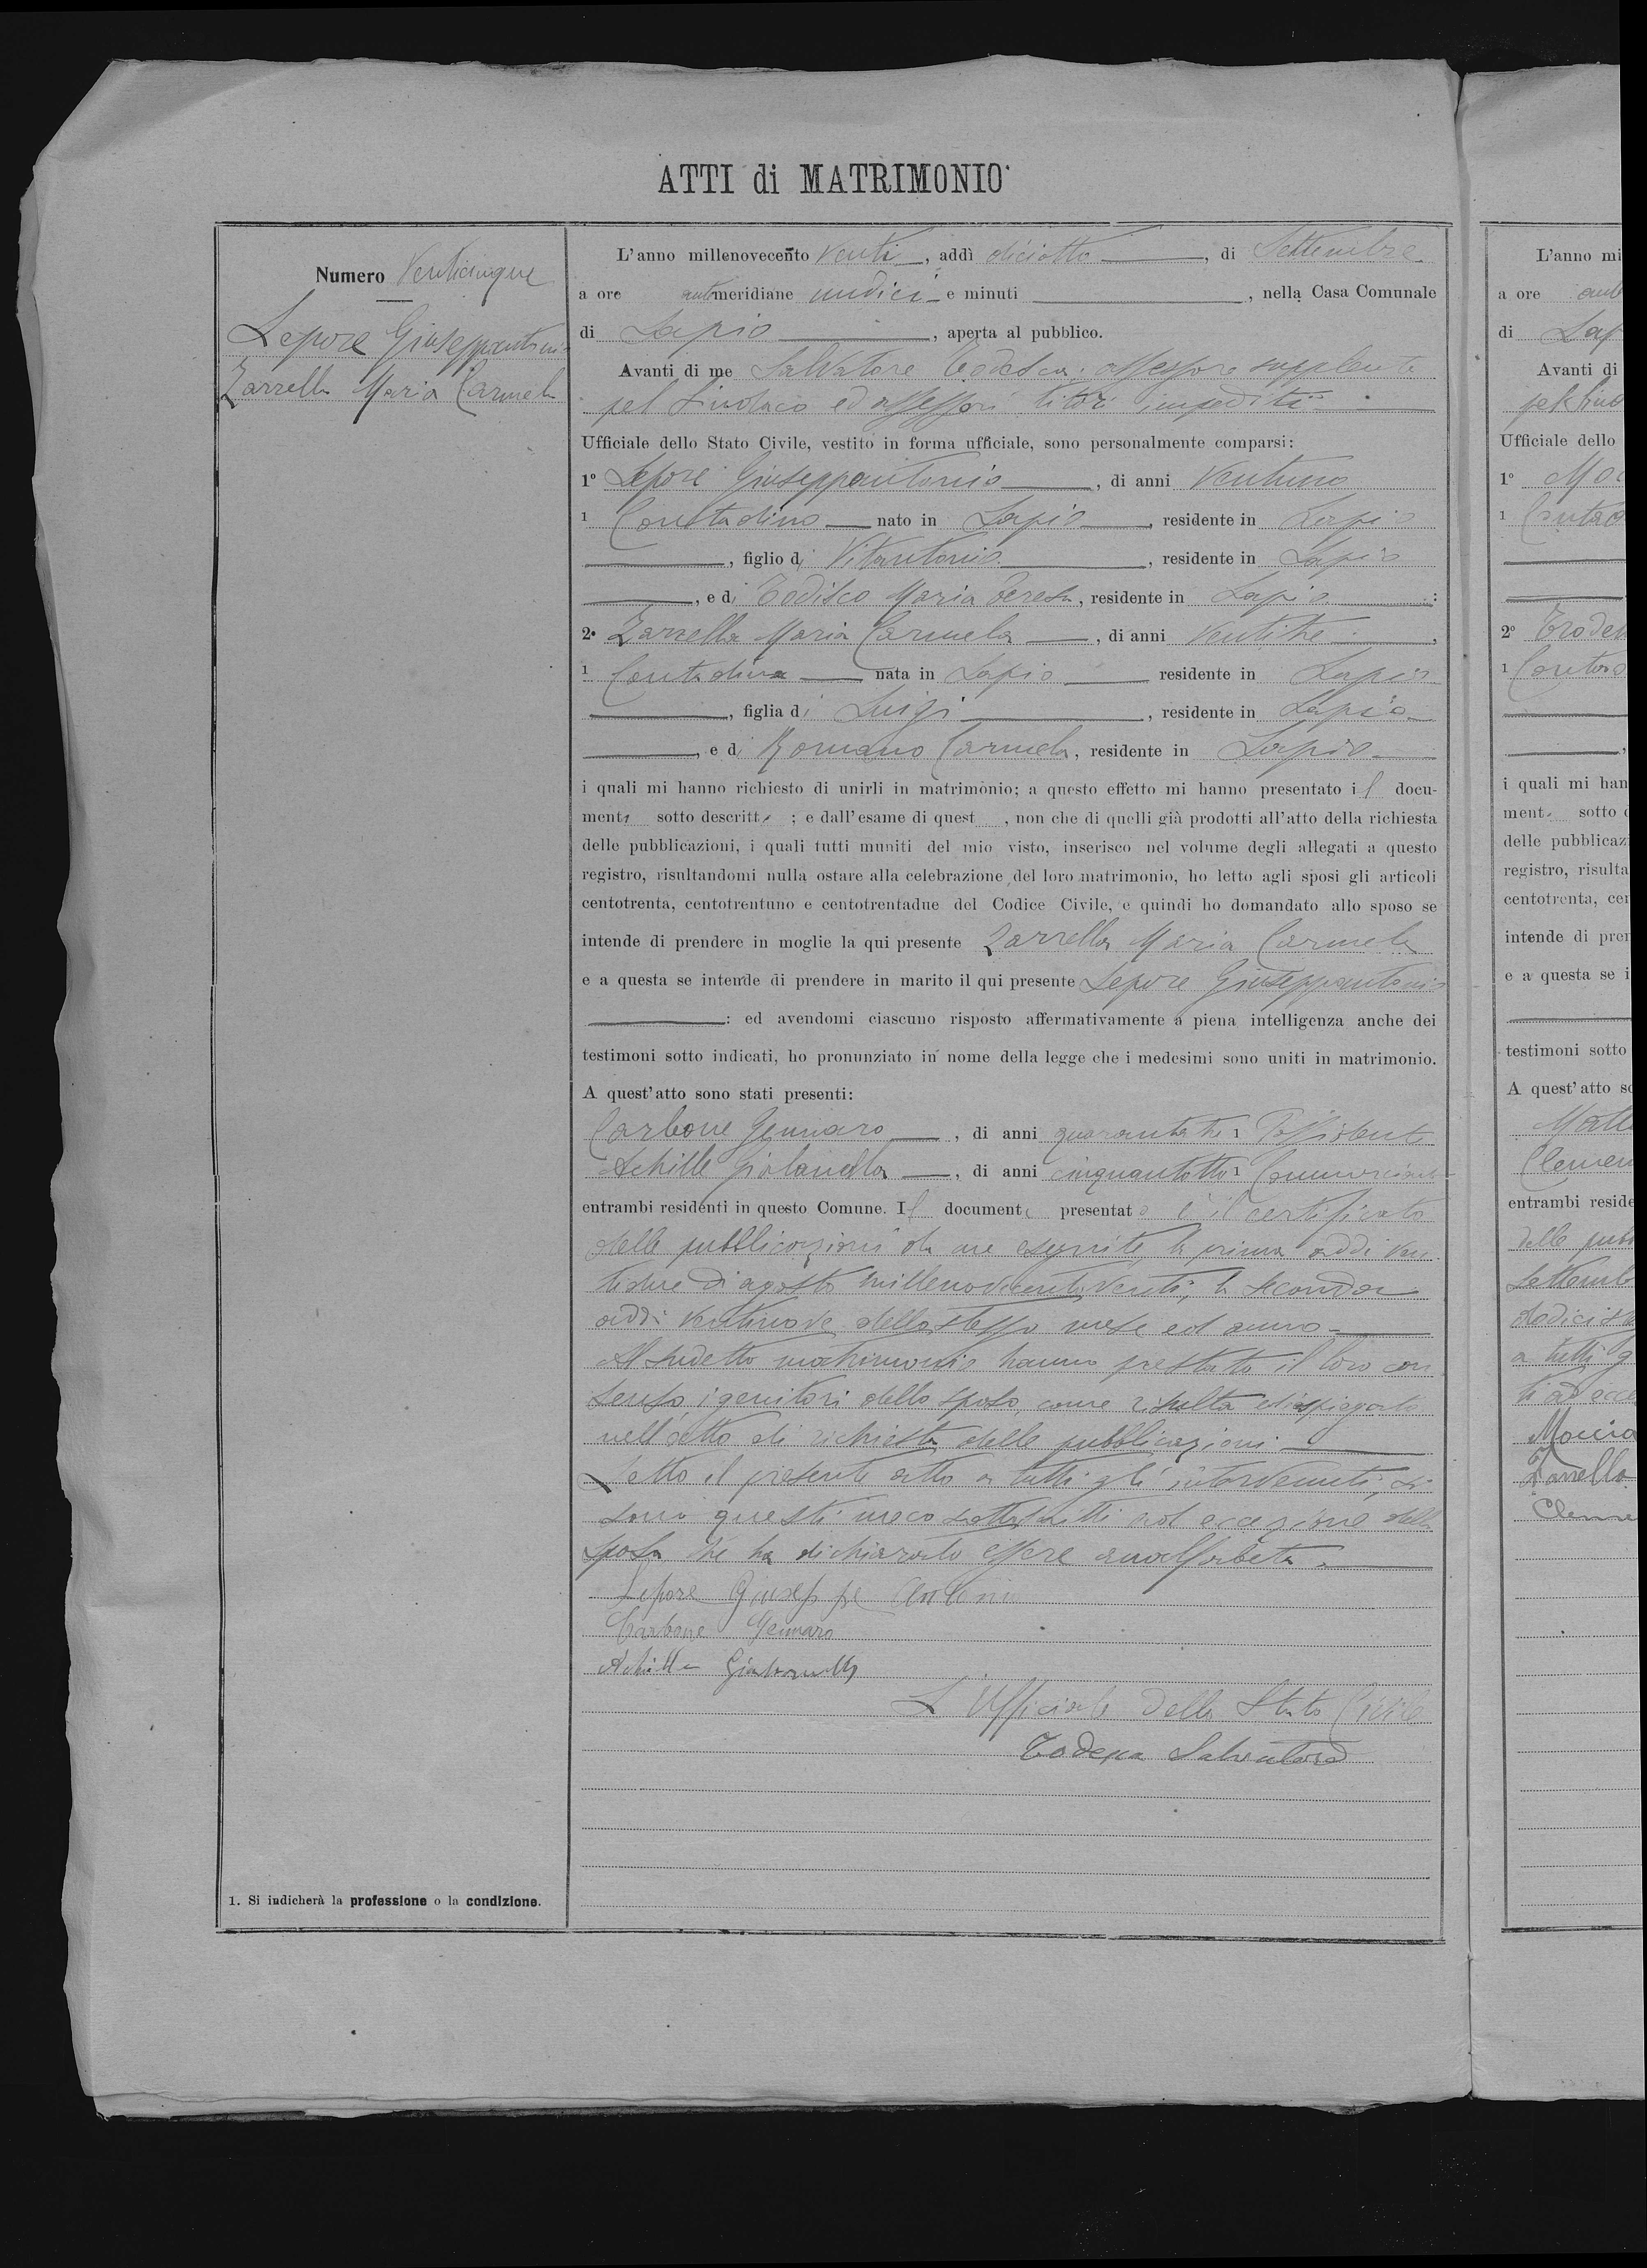 ATTI di MATRIMONIO
Numero Venticinque
Lepore Giuseppantonio
Zarrella Maria Carmela
1. Si indicherà la professione o la condizione.
L'anno millenovecento venti, addì diciotto, di Settembre
a ore antimeridiane undici e minuti, nella Casa Comunale
di Lapio, aperta al pubblico.
Avanti di me Salvatore Todesca, assessore supplente
pel Sindaco ed assessori titri impediti
Ufficiale dello Stato Civile, vestito in forma ufficiale, sono personalmente comparsi:
1° Lepore Giuseppantonio, di anni ventuno
1 Contadino nato in Lapio, residente in Lapio
, figlio di Vitantonio, residente in Lapio
, e di Todisco Maria Teresa, residente in Lapio :
2° Zarrella Maria Carmela, di anni ventitre,
1 Contadina nata in Lapio residente in Lapio
, figlia di Luigi, residente in Lapio
, e di Romano Carmela, residente in Lapio
i quali mi hanno richiesto di unirli in matrimonio; a questo effetto mi hanno presentato il docu-
mento sotto descritto ; e dall'esame di quest , non che di quelli già prodotti all'atto della richiesta
delle pubblicazioni, i quali tutti muniti del mio visto, inserisco nel volume degli allegati a questo
registro, risultandomi nulla ostare alla celebrazione del loro matrimonio, ho letto agli sposi gli articoli
centotrenta, centotrentuno e centotrentadue del Codice Civile, e quindi ho domandato allo sposo se
intende di prendere in moglie la qui presente Zarrella Maria Carmela
e a questa se intende di prendere in marito il qui presente Lepore Giuseppantonio
: ed avendomi ciascuno risposto affermativamente a piena intelligenza anche dei
testimoni sotto indicati, ho pronunziato in nome della legge che i medesimi sono uniti in matrimonio.
A quest'atto sono stati presenti:
Carbone Gennaro, di anni quarantatre 1 Possidente
Achille Giolanella, di anni cinquantotto 1 Commerciante
entrambi residenti in questo Comune. Il documento presentato è il certificato
delle pubblicazioni da me eseguite, la prima addì ven
tidue di agosto millenovecentoventi, la seconda
addì ventinove dello stesso mese ed anno.
Al sudetto matrimonio hanno prestato il loro con
senso i genitori dello sposo, come risulta
nell'atto di richiesta delle pubblicazioni.
Letto il presente atto a tutti gli intervenuti, si
sono questi meco sottoscritti ad eccezione della
sposa che ha dichiarato essere analfabeta.
Lepore Giuseppe Antonio
Carbone Gennaro
Achille Giolanella
L'Ufficiale dello Stato Civile
Todesca Salvatore
L'anno mi
a ore ant
di Lap
Avanti di
pel Sind
Ufficiale dello
1°
1 Contad
2° Trodes
1
i quali mi han
ment sotto d
delle pubblicaz
registro, risulta
centotrenta, cen
intende di pren
e a questa se i
testimoni sotto
A quest'atto so
Matt
Clemen
entrambi reside
delle pub
Settemb
a tutti g
Moccia
Zarrella
Cleme